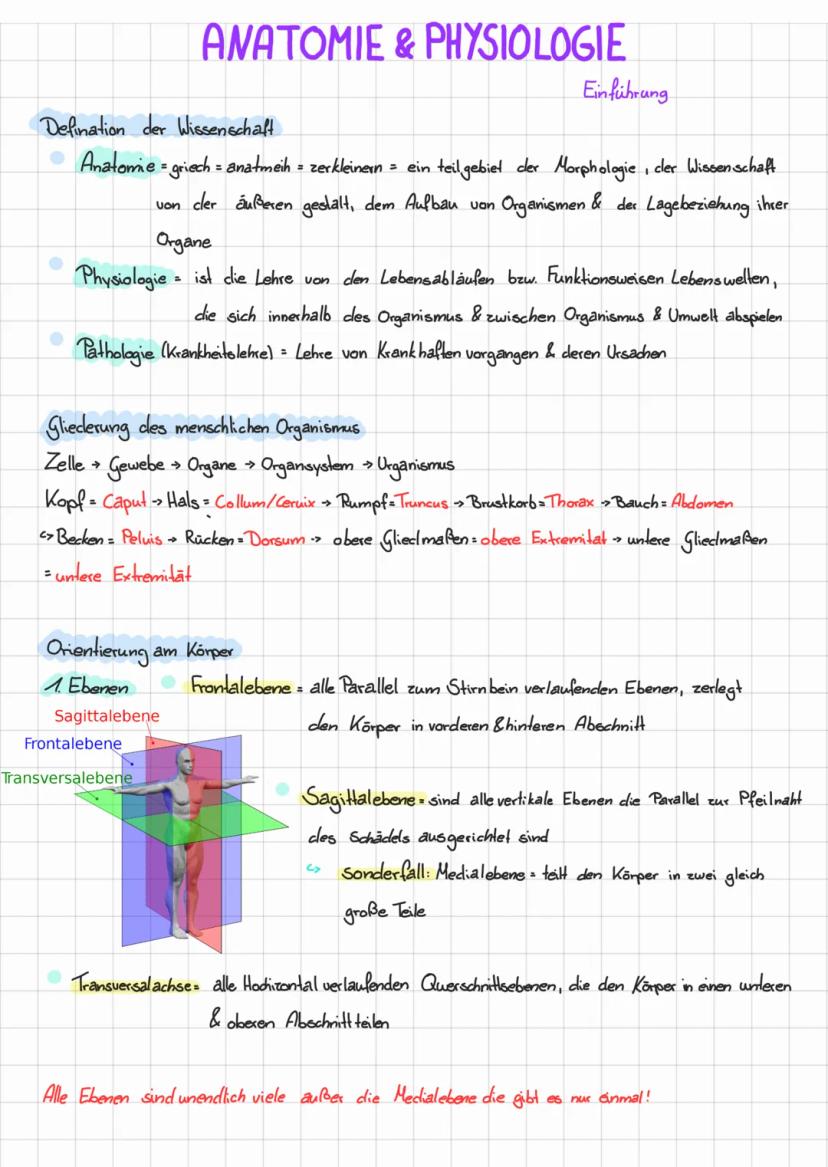 ANATOMIE & PHYSIOLOGIE
Einführung
Defination der Wissenschaft
Anatomie = griech = anatmeih = zerkleinern = ein teilgebiet der Morphologie, der Wissenschaft
von der äußeren gestalt, dem Aufbau von Organismen & der Lagebeziehung ihrer
Organe
Physiologie = ist die Lehre von den Lebensabläufen bzw. Funktionsweisen Lebenswelten,
die sich innerhalb des Organismus & zwischen Organismus & Umwelt abspielen
Pathologie (Krankheitslehre) = Lehre von Krankhaften vorgangen & deren Ursachen
Gliederung des menschlichen Organismus
Zelle → Gewebe → Organe → Organsystem → Organismus
Kopf = Caput → Hals = Collum/Cervix → Rumpf = Truncus → Brustkorb = Thorax → Bauch = Abdomen
↪ Becken = Pelvis → Rücken = Dorsum → obere Gliedmaßen = obere Extremitat → untere Gliedmaßen
= untere Extremität
Orientierung am Körper
1. Ebenen
Frontalebene = alle Parallel zum Stirnbein verlaufenden Ebenen, zerlegt
den Körper in vorderen & hinteren Abschnitt
Sagittalebene
Frontalebene
Transversalebene
Sagittalebene = sind alle vertikale Ebenen die Parallel zur Pfeilnaht
des Schädels ausgerichtet sind
↪ sonderfall: Medialebene = teilt den Körper in zwei gleich
große Teile
Transversalachse = alle Hochizontal verlaufenden Querschnittsebenen, die den Körper in einen unteren
& oberen Abschnitt teilen
Alle Ebenen sind unendlich viele außer die Medialebene die gibt es nur einmal!